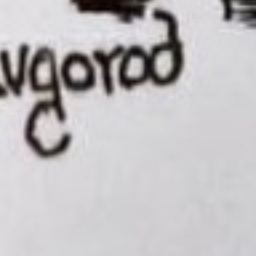 vgorod
C